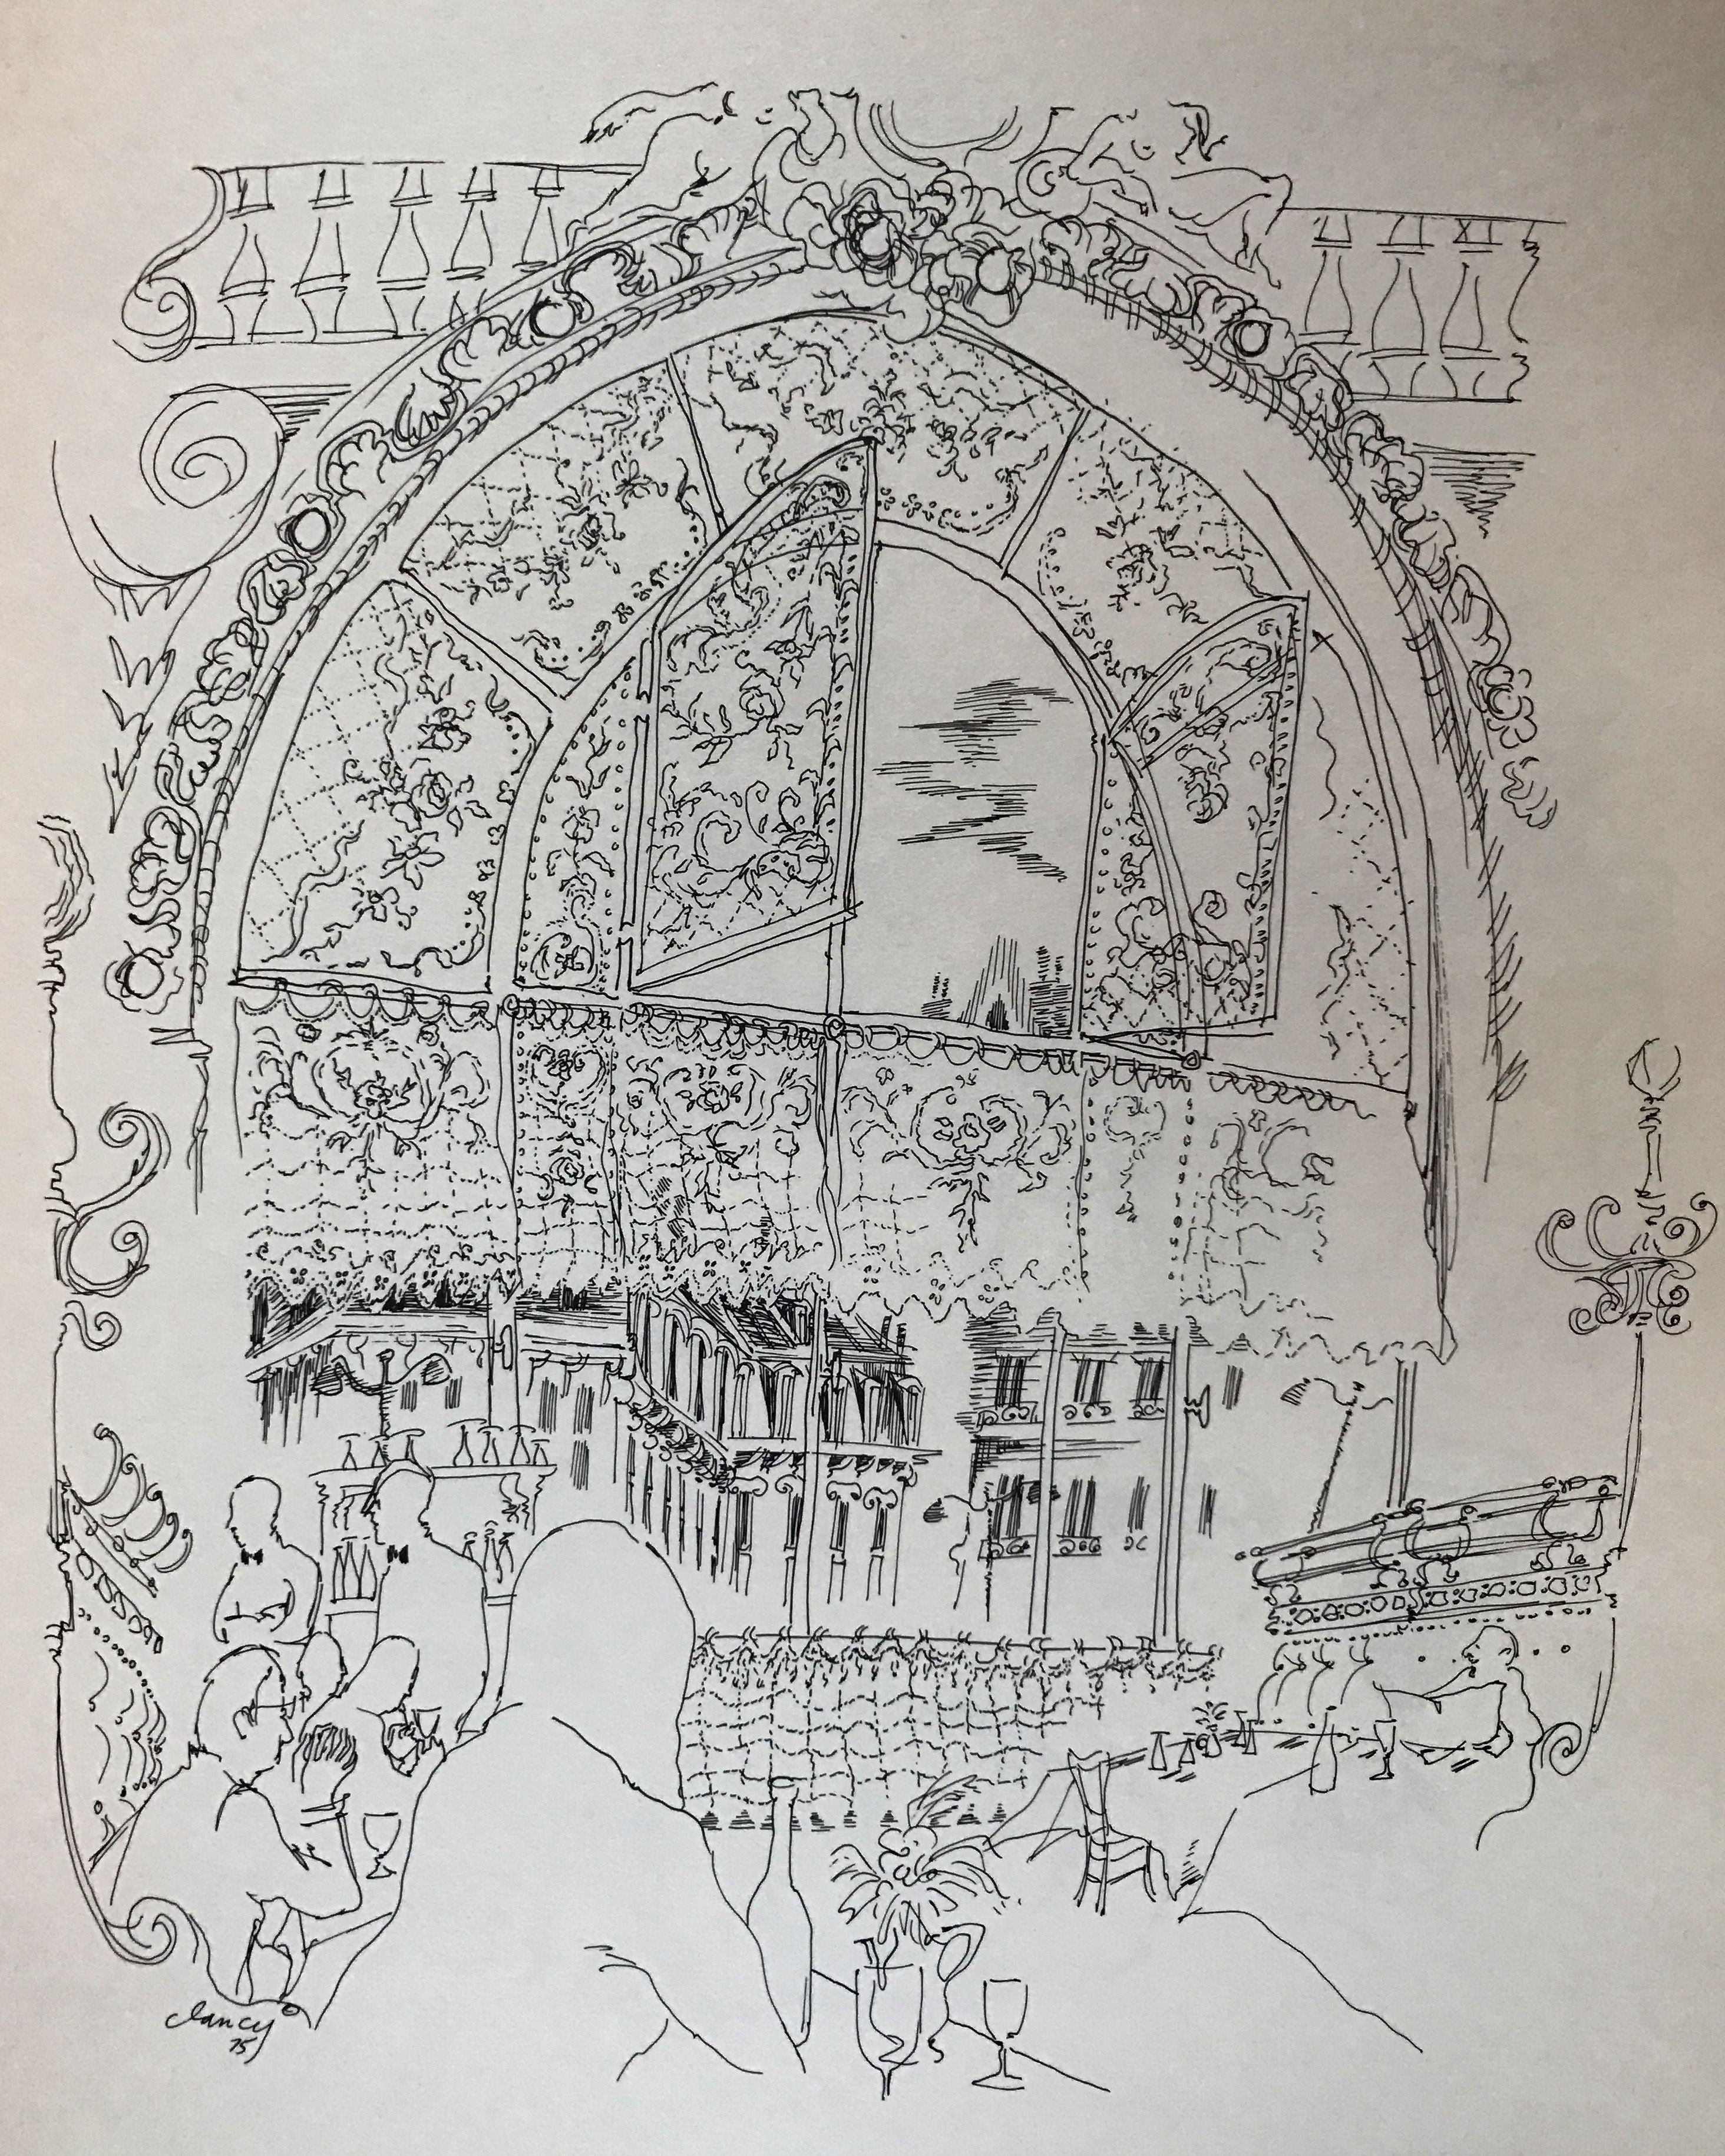 Clancy
75